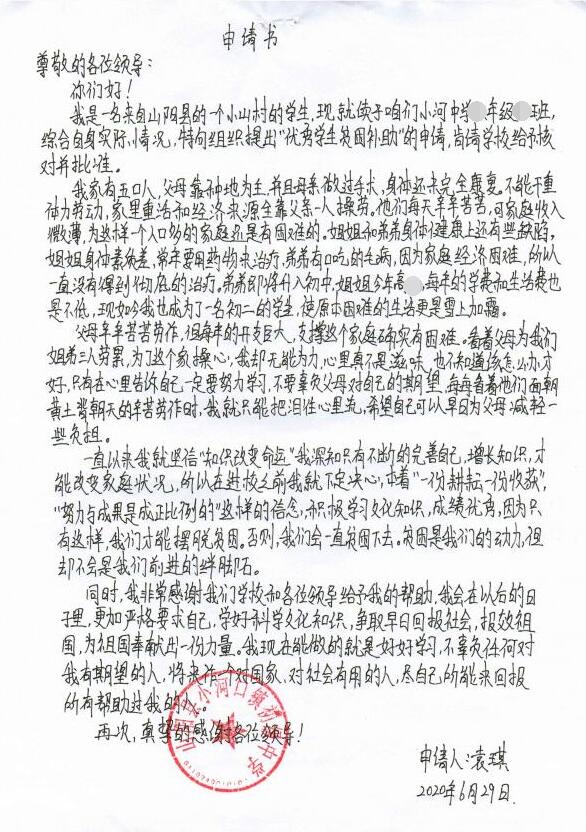 申请书
尊敬的各位领导：
你们好！
我是一名来自山阳县的一个小山村的学生，现就读于咱们小河中学年级班，
综合自身实际情况，特向组织提出"优秀学生贫困补助"的申请，肯请学校给予核
对并批准。
我家有五口人，父母靠种地为主，并且母亲做过手术，身体还未完全康复。不能干重
体力劳动，家里重活和经济来源全靠父亲一人操劳。他们每天辛辛苦苦，可家庭收入
微薄，为这样一个人口多的家庭还是有困难的。姐姐和弟弟身体健康上还有些缺陷，
姐姐身体素质差，常年要用药物来治疗，弟弟有口吃的毛病，因为家庭经济困难，所以
一直没有得到彻底的治疗。弟弟即将升入初中，姐姐今年高，每年的学费和生活费也
是不低，现如今我也成为了一名初二的学生，使原本困难的生活更是雪上加霜。
父母辛辛苦苦劳作，但每年的开支巨大，支撑这个家庭确实有困难。看着父母为我们
姐弟三人劳累，为了这个家操心，我却无能为力，心里真不是滋味，也不知道该怎么办才
好，只有在心里告诉自己一定要努力学习，不要辜负父母对自己的期望，每每看着他们面朝
黄土背朝天的辛苦劳作时，我就只能把泪往心里流，希望自己可以早日为父母减轻一
些负担。
一直以来我就坚信"知识改变命运"我深知只有不断的完善自己，增长知识，才
能改变家庭状况，所以在进校之前我就下定决心，本着"一份耕耘一份收获"，
"努力与成果是成正比例的"这样的信念，积极学习文化知识，成绩优秀，因为只
有这样，我们才能摆脱贫困。否则，我们会一直贫困下去。贫困是我们的动力，但
却不会是我们前进的绊脚石。
同时，我非常感谢我们学校和各位领导给予我的帮助，我会在以后的日
子里，更加严格要求自己，学好科学文化知识，争取早日回报社会，报效祖
国，为祖国奉献出一份力量。我现在能做的就是好好学习，不辜负任何对
我有期望的人，将来作一个对国家、对社会有用的人，尽自己所能来回报
所有帮助过我的人。
再次，真挚的感谢各位领导！
山阳县小河口镇初级中学
申请人：袁琪
2020年6月29日